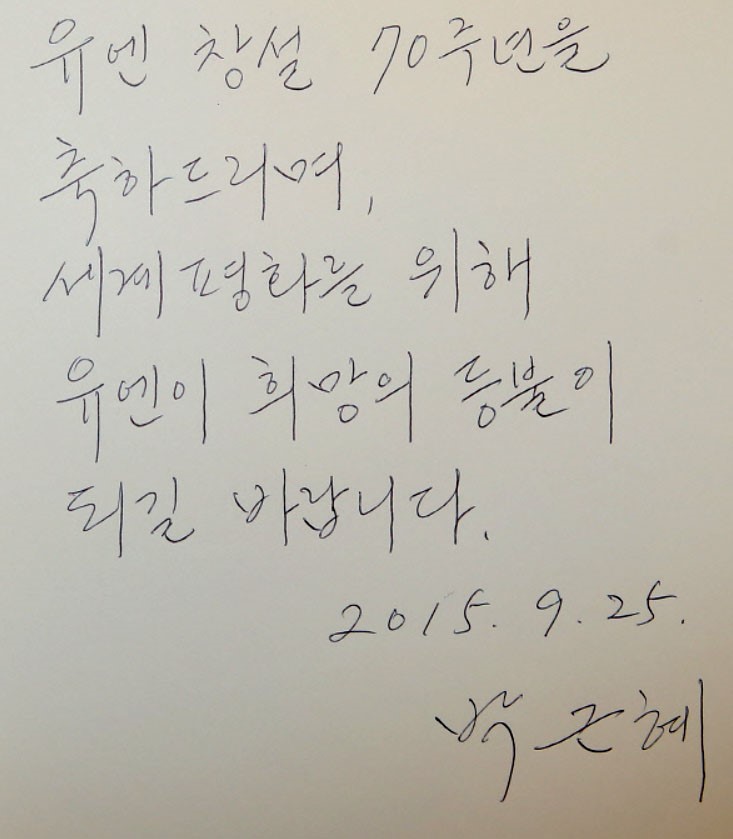 유엔 창설 70주년을
축하드리며,
세계평화를 위해
유엔이 희망의 등불이
되길 바랍니다.
2015. 9. 25.
박근혜